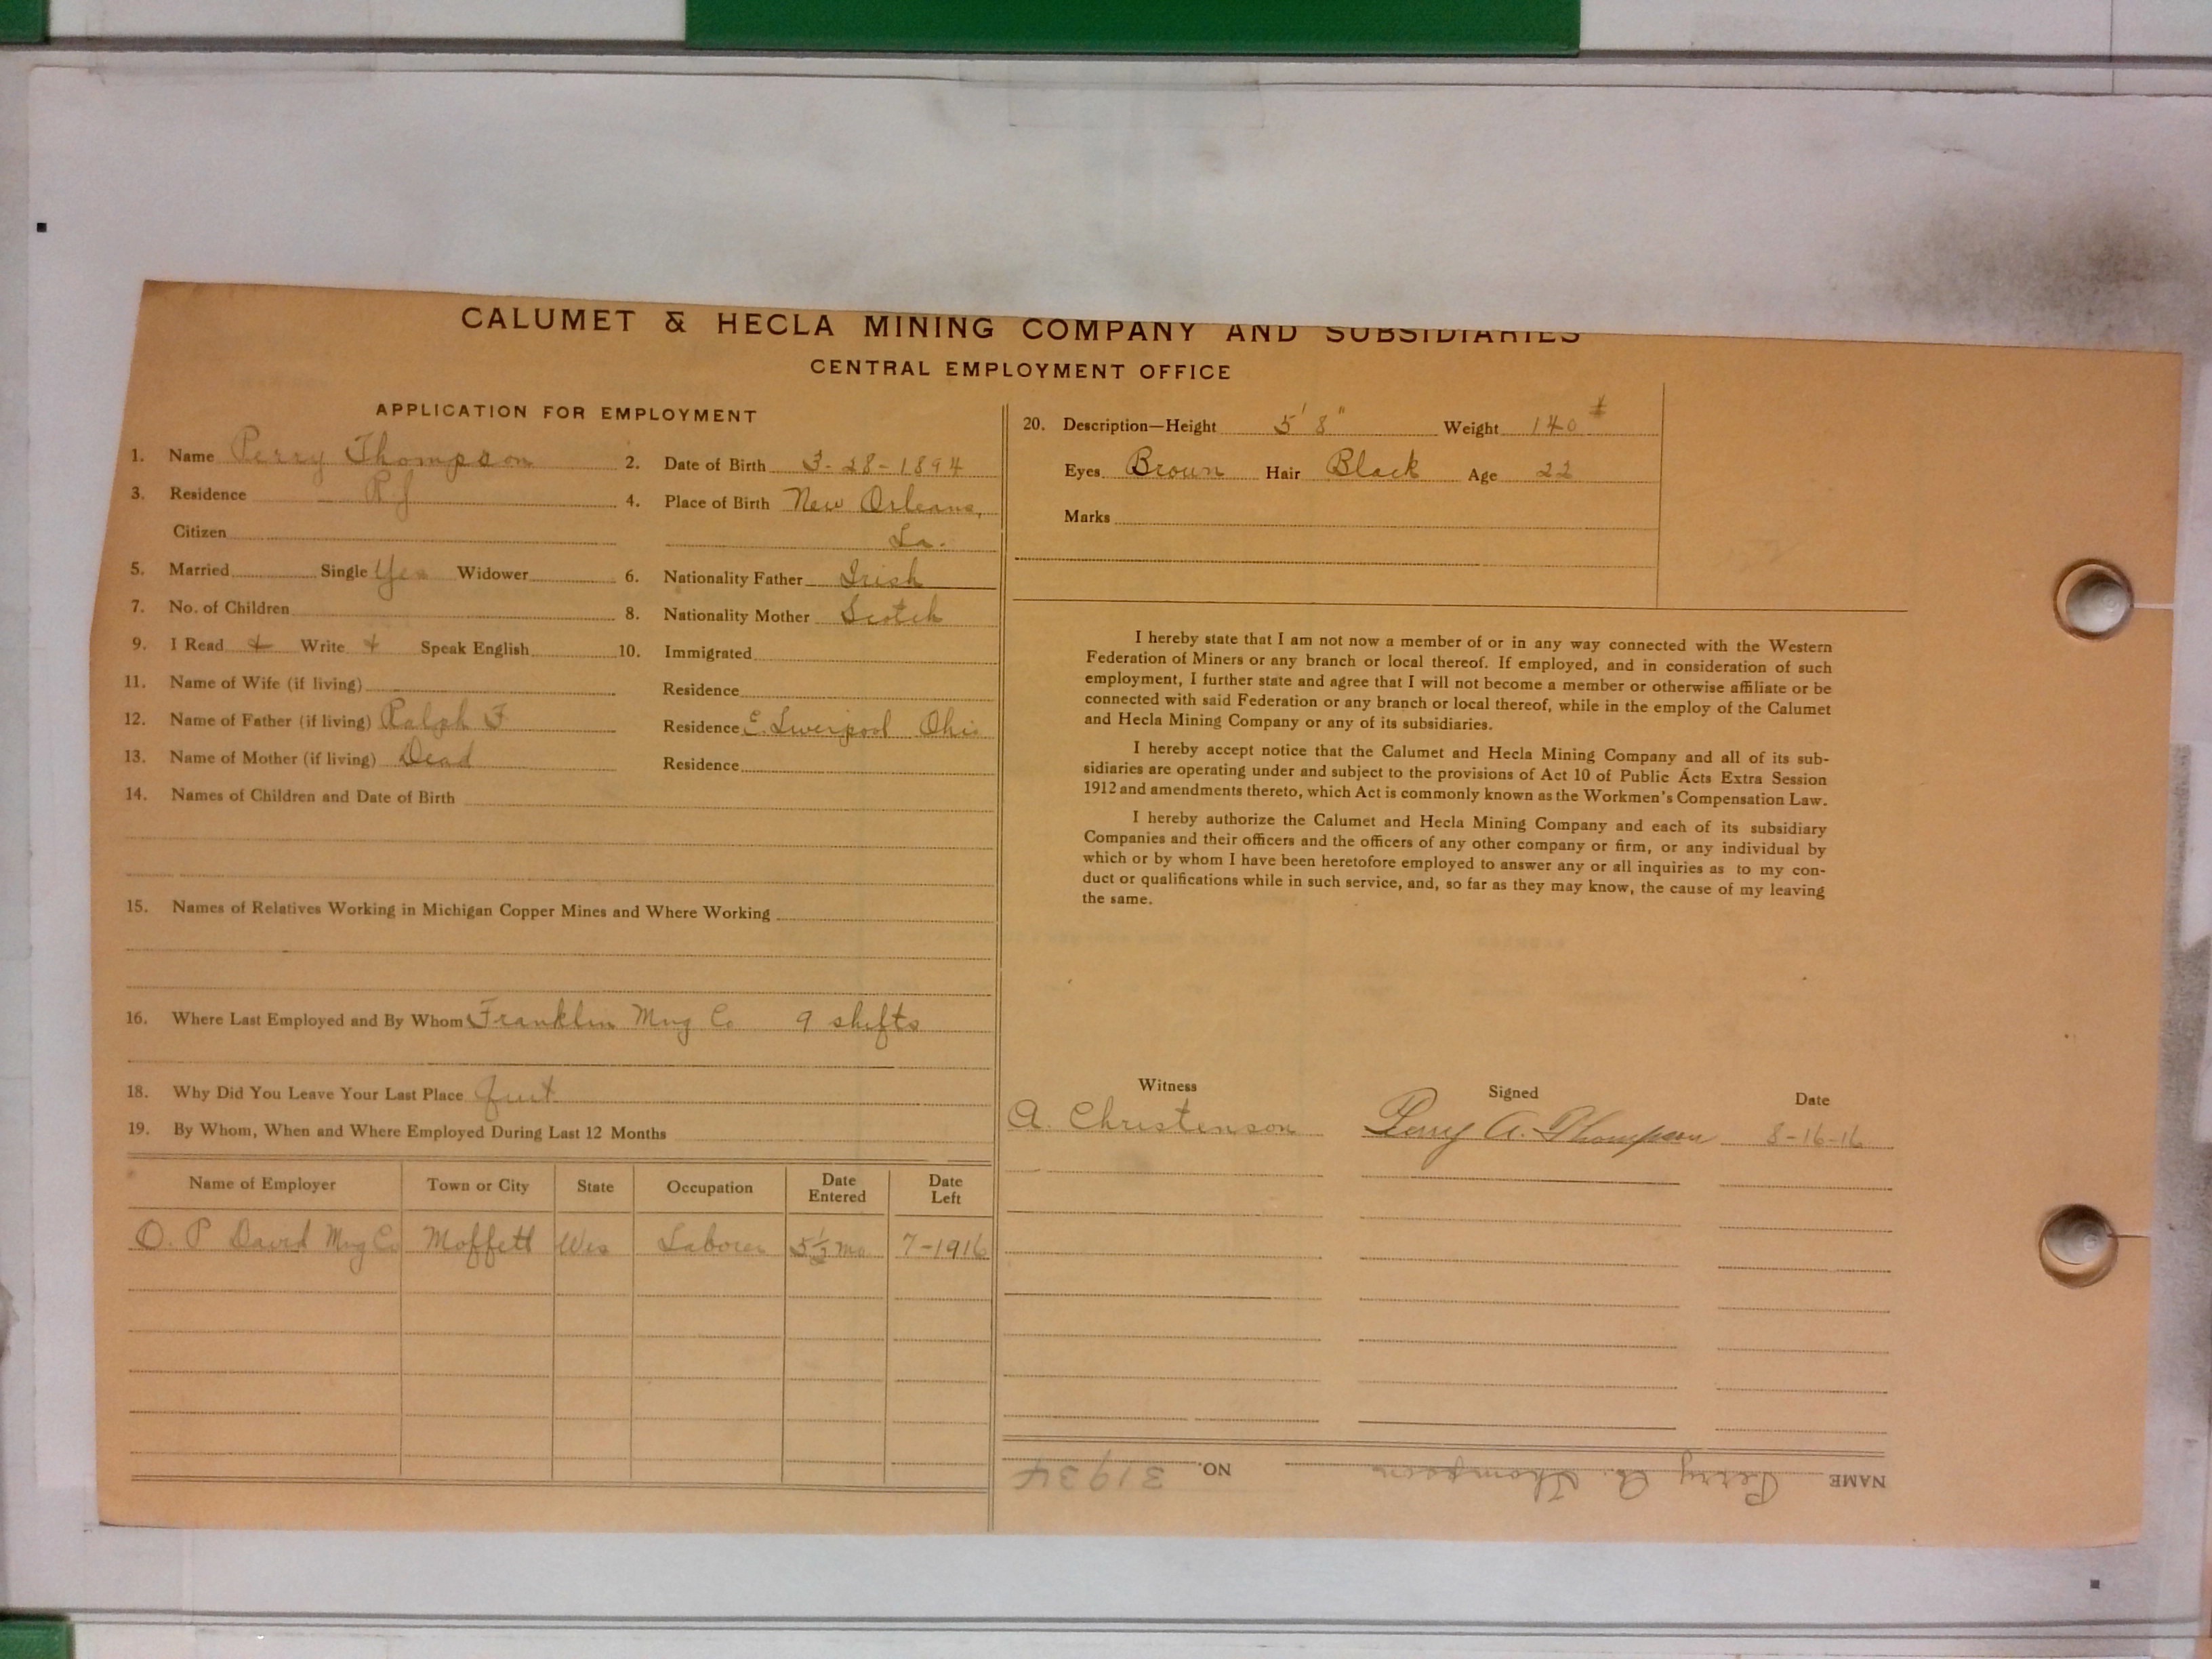 CALUMET & HECLA MINING COMPANY AND SUBSIDIARIES
CENTRAL EMPLOYMENT OFFICE
APPLICATION FOR EMPLOYMENT
1. Name Perry Thompson 2. Date of Birth 3-28-1894
3. Residence RJ 4. Place of Birth New Orleans,
Citizen La.
5. Married Single Yes Widower 6. Nationality Father Irish
7. No. of Children 8. Nationality Mother Scotch
9. I Read + Write + Speak English 10. Immigrated
11. Name of Wife (if living) Residence
12. Name of Father (if living) Ralph F Residence E. Liverpool Ohio
13. Name of Mother (if living) Dead Residence
14. Names of Children and Date of Birth
15. Names of Relatives Working in Michigan Copper Mines and Where Working
16. Where Last Employed and By Whom Franklin Mng Co 9 shifts
18. Why Did You Leave Your Last Place Quit
19. By Whom, When and Where Employed During Last 12 Months
Name of Employer Town or City State Occupation Date Entered Date Left
O. P David Mng Co Moffett Wis Laborer 5½ mo 7-1916
20. Description—Height 5' 8" Weight 140 #
Eyes Brown Hair Black Age 22
Marks
I hereby state that I am not now a member of or in any way connected with the Western
Federation of Miners or any branch or local thereof. If employed, and in consideration of such
employment, I further state and agree that I will not become a member or otherwise affiliate or be
connected with said Federation or any branch or local thereof, while in the employ of the Calumet
and Hecla Mining Company or any of its subsidiaries.
I hereby accept notice that the Calumet and Hecla Mining Company and all of its sub-
sidiaries are operating under and subject to the provisions of Act 10 of Public Acts Extra Session
1912 and amendments thereto, which Act is commonly known as the Workmen's Compensation Law.
I hereby authorize the Calumet and Hecla Mining Company and each of its subsidiary
Companies and their officers and the officers of any other company or firm, or any individual by
which or by whom I have been heretofore employed to answer any or all inquiries as to my con-
duct or qualifications while in such service, and, so far as they may know, the cause of my leaving
the same.
Witness Signed Date
A. Christenson Perry A. Thompson 8-16-16
NAME Perry A. Thompson NO. 31934